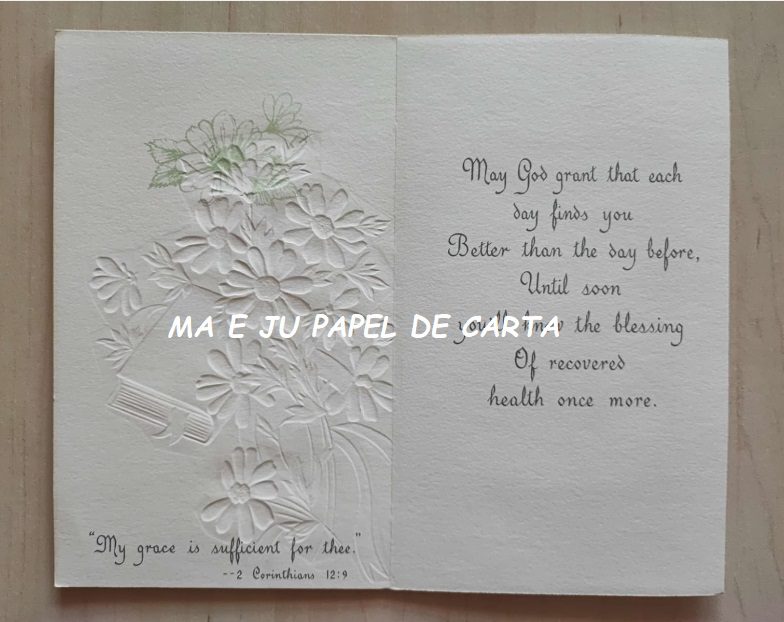 "My grace is sufficient for thee."
--2 Corinthians 12:9
May God grant that each
day finds you
Better than the day before,
Until soon
you'll know the blessing
Of recovered
health once more.
MA E JU PAPEL DE CARTA